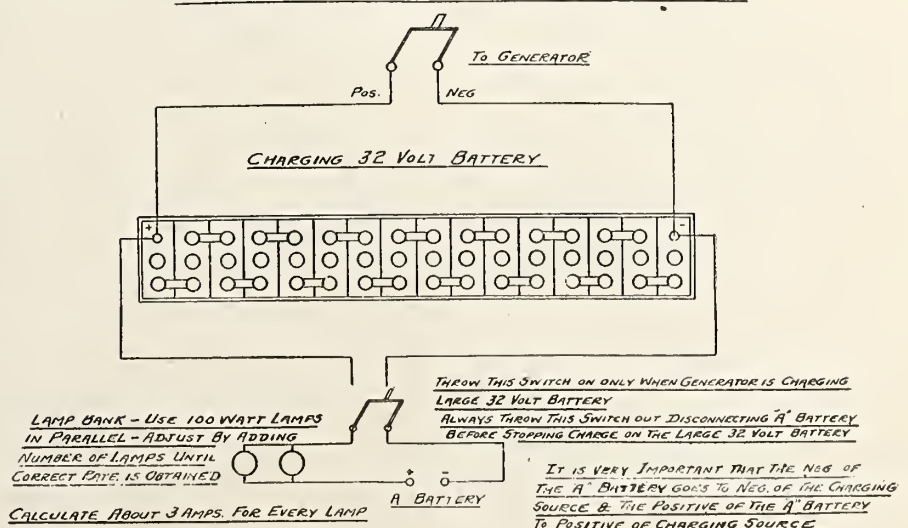 TO GENERATOR
POS. NEG
CHARGING 32 VOLT BATTERY
+ -
THROW THIS SWITCH ON ONLY WHEN GENERATOR IS CHARGING
LARGE 32 VOLT BATTERY
ALWAYS THROW THIS SWITCH OUT DISCONNECTING "A" BATTERY
BEFORE STOPPING CHARGE ON THE LARGE 32 VOLT BATTERY
LAMP BANK - USE 100 WATT LAMPS
IN PARALLEL - ADJUST BY ADDING
NUMBER OF LAMPS UNTIL
CORRECT RATE IS OBTAINED
+ -
A BATTERY
CALCULATE ABOUT 3 AMPS. FOR EVERY LAMP
IT IS VERY IMPORTANT THAT THE NEG OF
THE "A" BATTERY GOES TO NEG. OF THE CHARGING
SOURCE & THE POSITIVE OF THE "A" BATTERY
TO POSITIVE OF CHARGING SOURCE